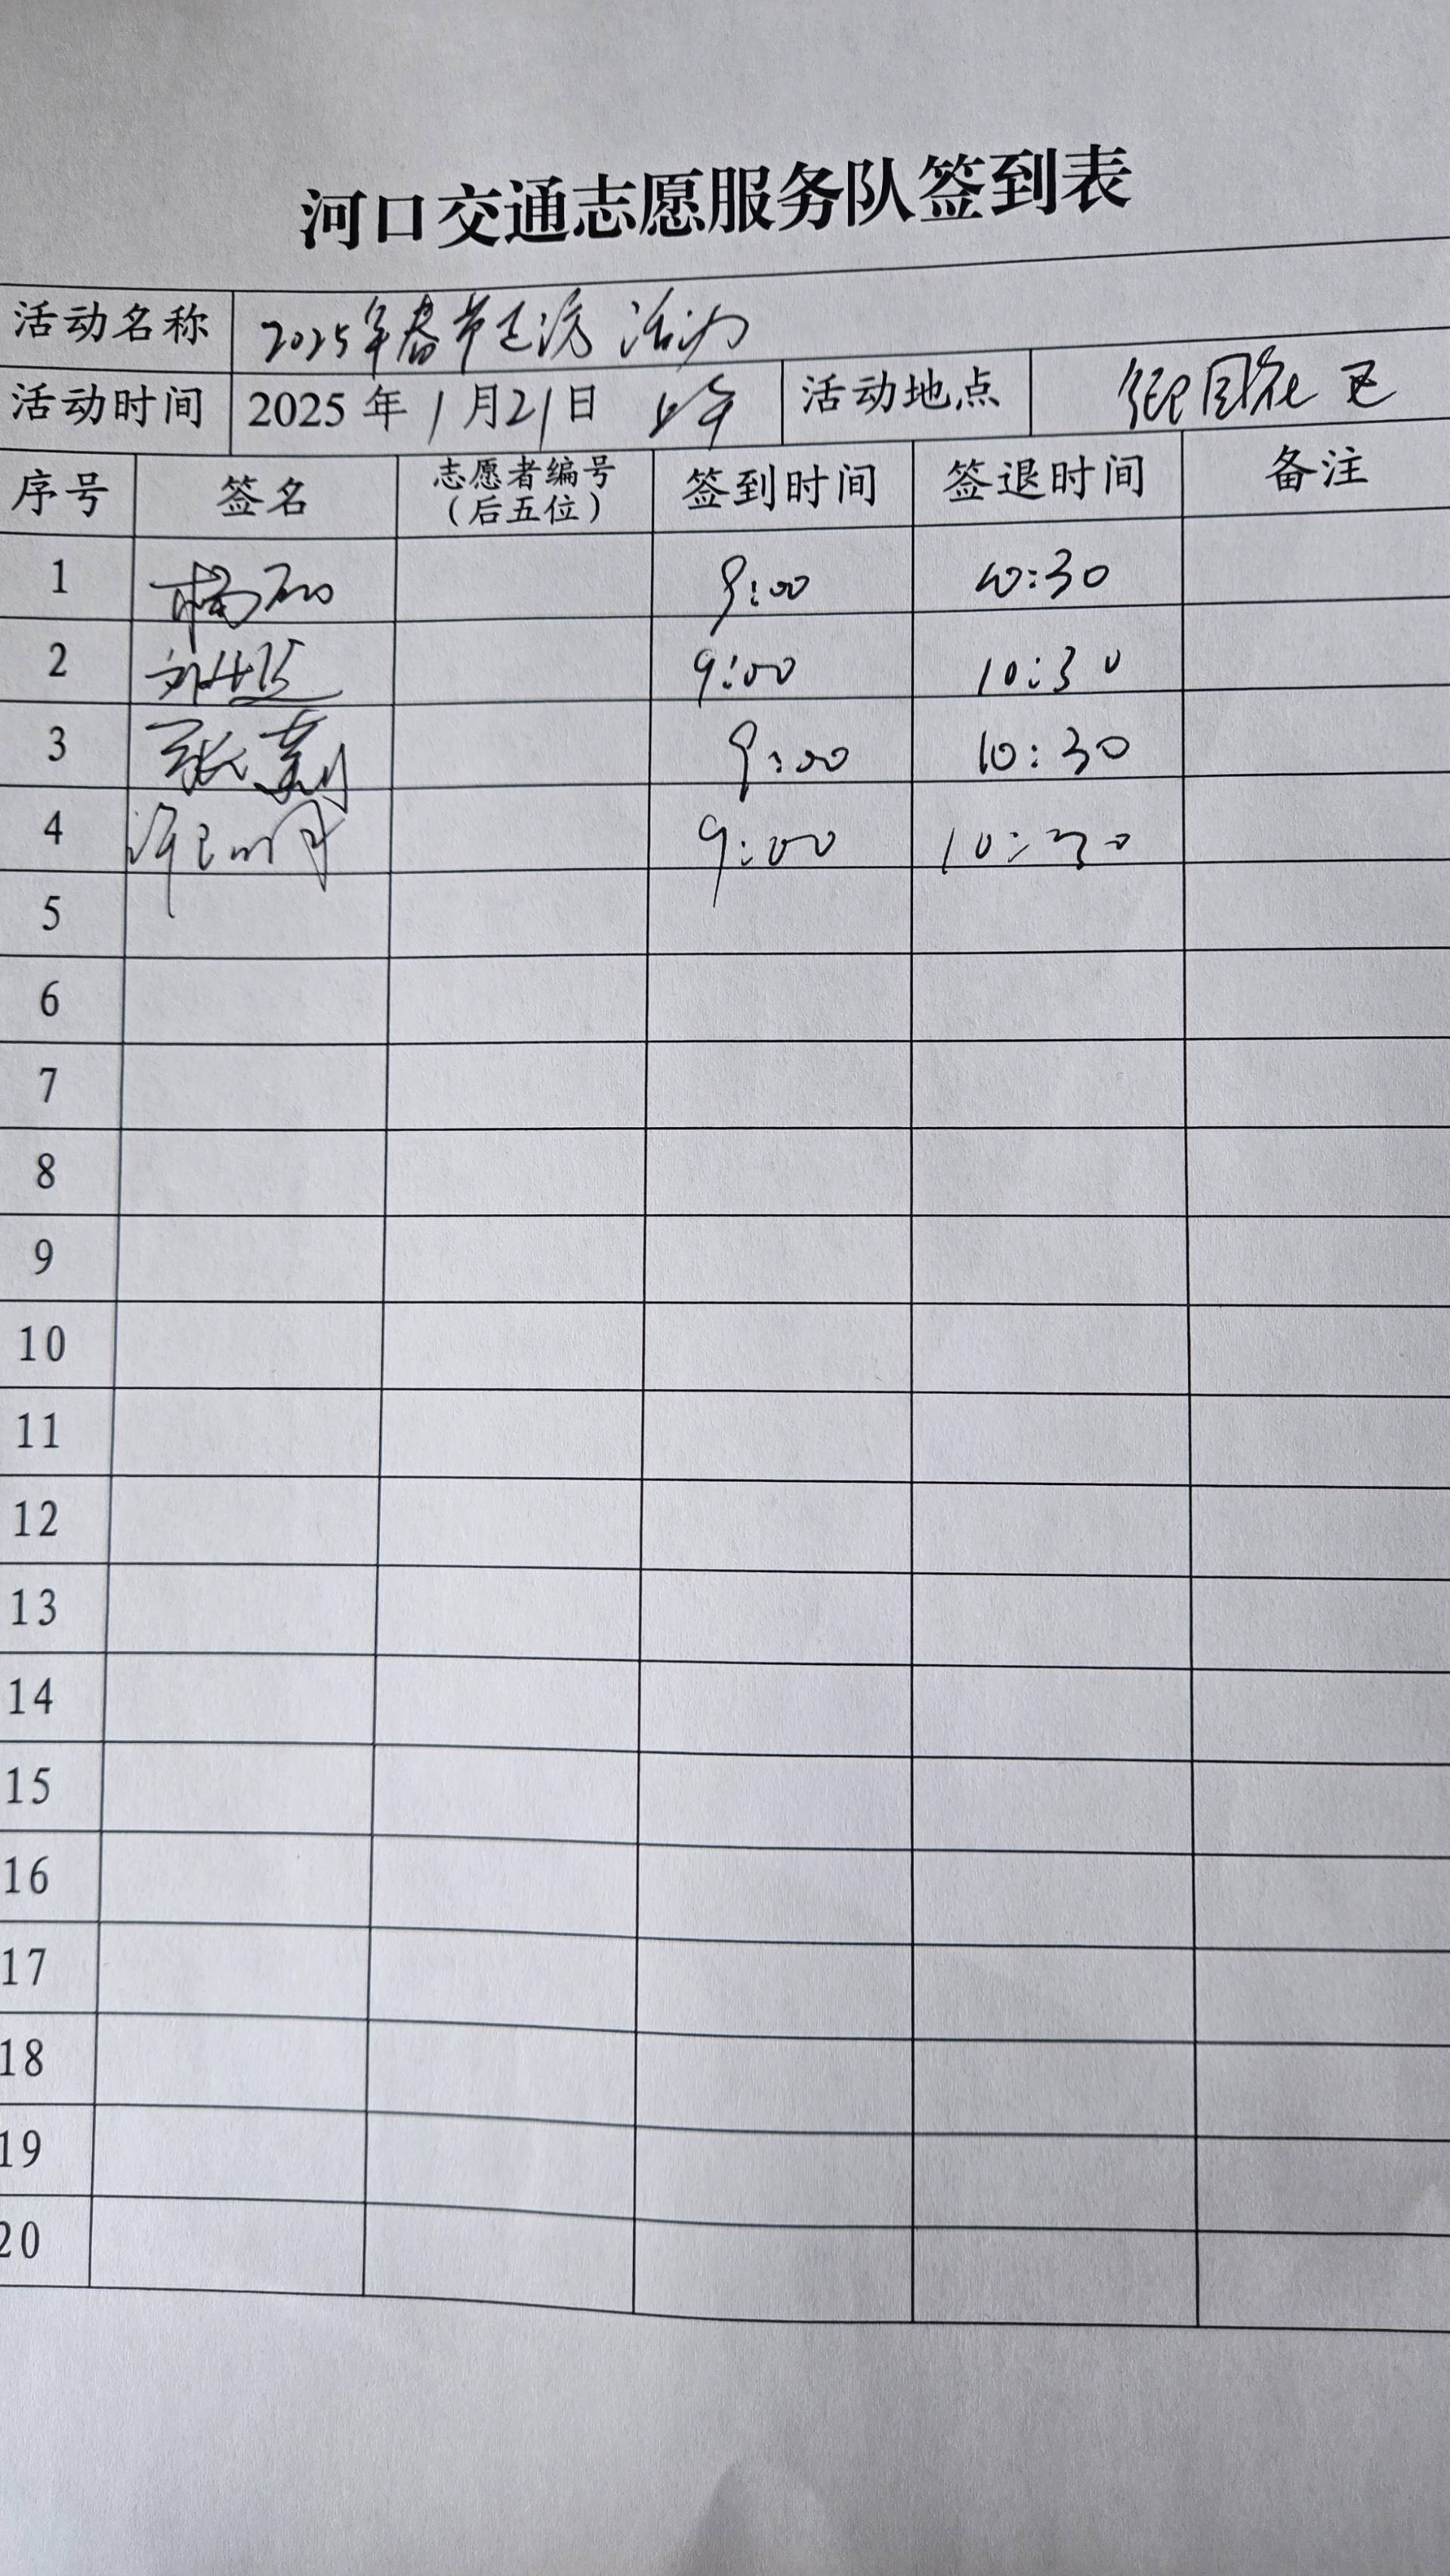 河口交通志愿服务队签到表
活动名称 2025年春节走访 活动
活动时间 2025 年 1 月 21 日 上午 活动地点 御园社区
序号 签名 志愿者编号（后五位） 签到时间 签退时间 备注
1 杨 9:00 10:30
2 9:00 10:30
3 张 9:00 10:30
4 许 9:00 10:30
5
6
7
8
9
10
11
12
13
14
15
16
17
18
19
20